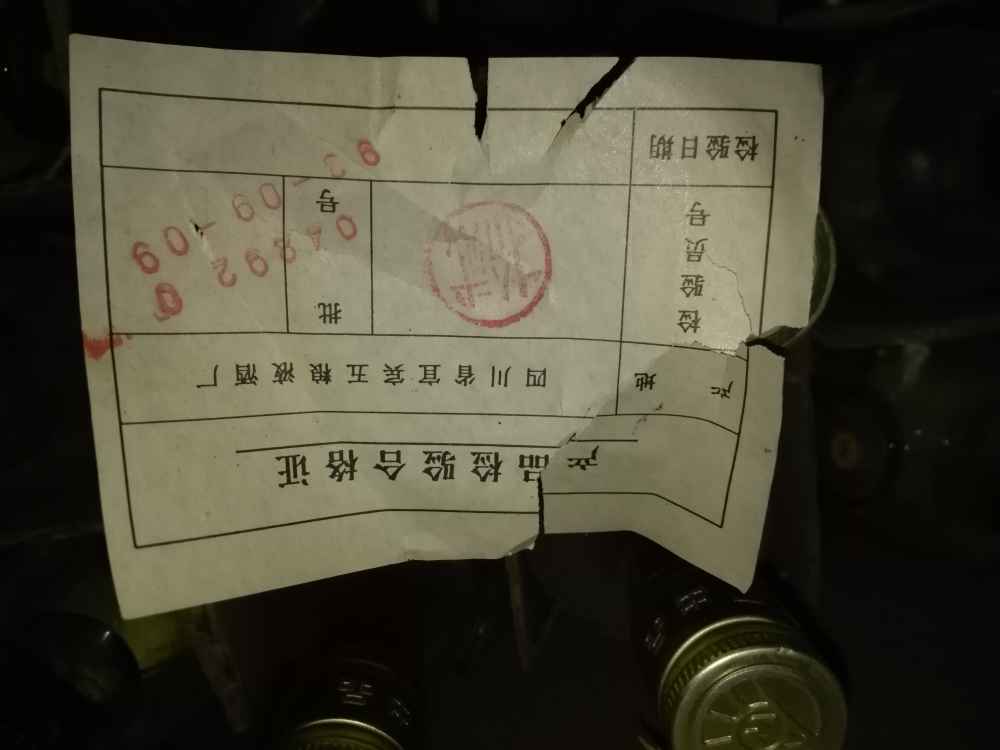 产品检验合格证
产地 四川省宜宾五粮液酒厂
检验员号 批号
检验日期
93-09-09